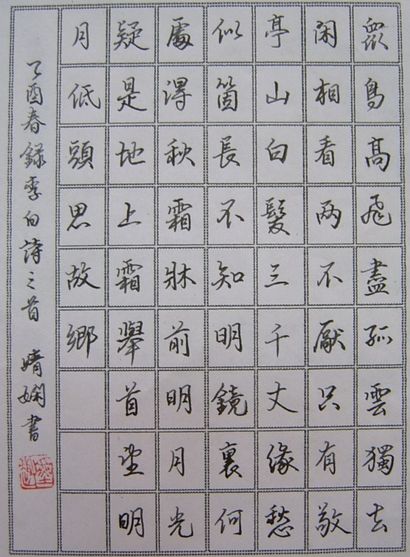 眾鳥高飛盡孤雲獨去
閑相看兩不厭只有敬
亭山白髮三千丈緣愁
似箇長不知明鏡裏何
處得秋霜牀前明月光
疑是地上霜舉首望明
月低頭思故鄉
乙酉春錄李白詩三首 婧嫻書